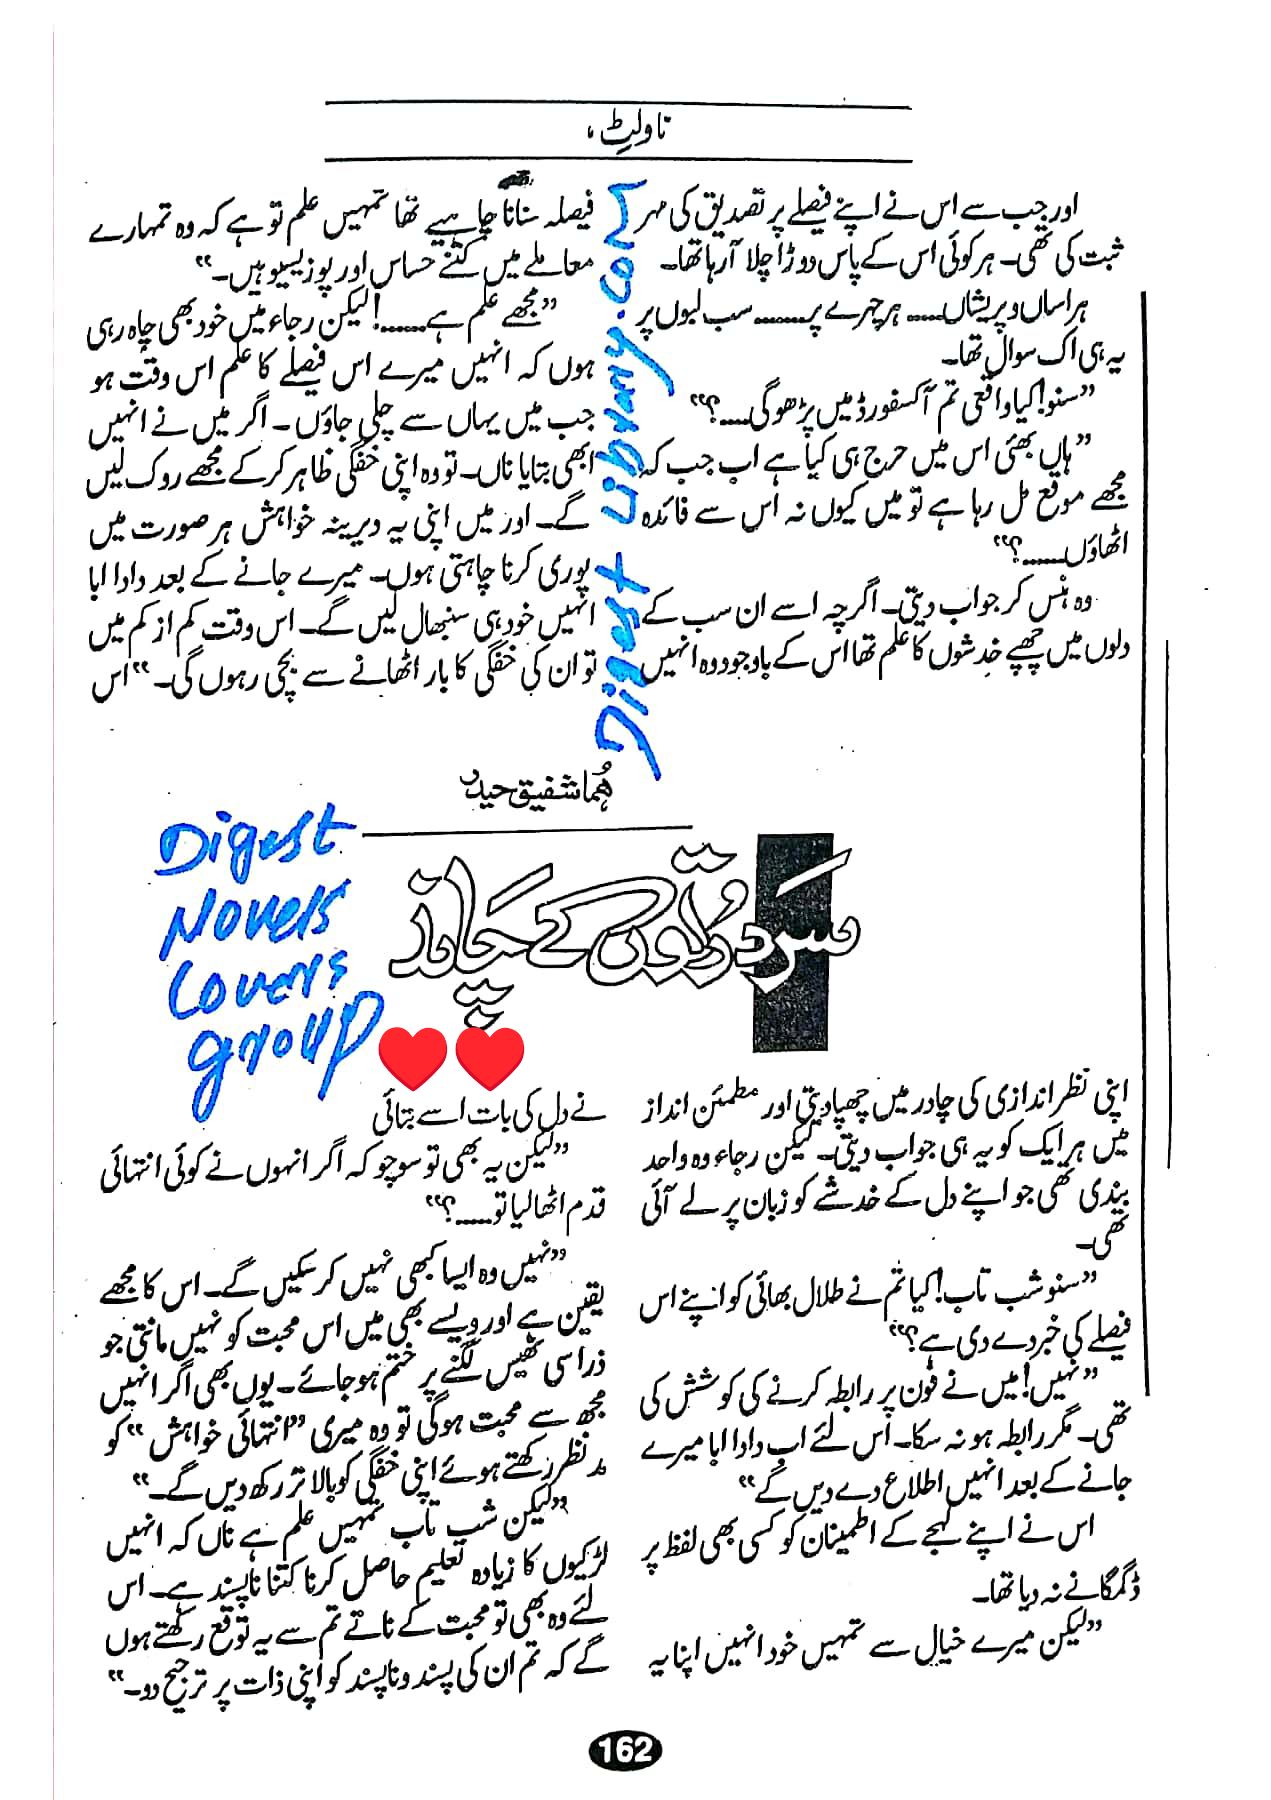 ناولٹ،
اور جب سے اس نے اپنے فیصلے پر تصدیق کی مہر
ثبت کی تھی۔ ہر کوئی اس کے پاس دوڑا چلا آ رہا تھا۔
ہراساں و پریشاں...... ہر چہرے پر........ سب لبوں پر
یہ ہی اک سوال تھا۔
”سنو! کیا واقعی تم آکسفورڈ میں پڑھو گی.....؟“
”ہاں بھئی اس میں حرج ہی کیا ہے اب جب کہ
مجھے موقع مل رہا ہے تو میں کیوں نہ اس سے فائدہ
اٹھاؤں......؟“
وہ ہنس کر جواب دیتی۔ اگرچہ اسے ان سب کے
دلوں میں چھپے خدشوں کا علم تھا اس کے باوجود وہ انہیں
ہما شفیق حیدر
سرد رُتوں کے چاند
اپنی نظر اندازی کی چادر میں چھپا دیتی اور مطمئن انداز
میں ہر ایک کو یہ ہی جواب دیتی۔ لیکن رجاء وہ واحد
بندی تھی جو اپنے دل کے خدشے کو زبان پر لے آئی
تھی۔
”سنو شب تاب! کیا تم نے طلال بھائی کو اپنے اس
فیصلے کی خبر دے دی ہے؟“
”نہیں! میں نے فون پر رابطہ کرنے کی کوشش کی
تھی۔ مگر رابطہ ہو نہ سکا۔ اس لئے اب دادا ابا میرے
جانے کے بعد انہیں اطلاع دے دیں گے“
اس نے اپنے لہجے کے اطمینان کو کسی بھی لفظ پر
ڈگمگانے نہ دیا تھا۔
”لیکن میرے خیال سے تمہیں خود انہیں اپنا یہ
فیصلہ سنانا چاہیے تھا تمہیں علم تو ہے کہ وہ تمہارے
معاملے میں کتنے حساس اور پوزیسیو ہیں۔“
”مجھے علم ہے......! لیکن رجاء میں خود بھی چاہ رہی
ہوں کہ انہیں میرے اس فیصلے کا علم اس وقت ہو
جب میں یہاں سے چلی جاؤں۔ اگر میں نے انہیں
ابھی بتایا ناں۔ تو وہ اپنی خفگی ظاہر کر کے مجھے روک لیں
گے۔ اور میں اپنی یہ دیرینہ خواہش ہر صورت میں
پوری کرنا چاہتی ہوں۔ میرے جانے کے بعد دادا ابا
انہیں خود ہی سنبھال لیں گے۔ اس وقت کم از کم میں
تو ان کی خفگی کا بار اٹھانے سے بچی رہوں گی۔“ اس
نے دل کی بات اسے بتائی
”لیکن یہ بھی تو سوچو کہ اگر انہوں نے کوئی انتہائی
قدم اٹھا لیا تو.....؟“
”نہیں وہ ایسا کبھی نہیں کر سکیں گے۔ اس کا مجھے
یقین ہے اور ویسے بھی میں اس محبت کو نہیں مانتی جو
ذرا سی ٹھیس لگنے پر ختم ہو جائے۔ یوں بھی اگر انہیں
مجھ سے محبت ہو گی تو وہ میری ”انتہائی خواہش“ کو
مد نظر رکھتے ہوئے اپنی خفگی کو بالا تر رکھ دیں گے۔“
”لیکن شب تاب تمہیں علم ہے ناں کہ انہیں
لڑکیوں کا زیادہ تعلیم حاصل کرنا کتنا ناپسند ہے۔ اس
لئے وہ بھی تو محبت کے ناتے تم سے یہ توقع رکھتے ہوں
گے کہ تم ان کی پسند و ناپسند کو اپنی ذات پر ترجیح دو۔“
Digest Library.com
Digest
Novels
Lovers
group
162